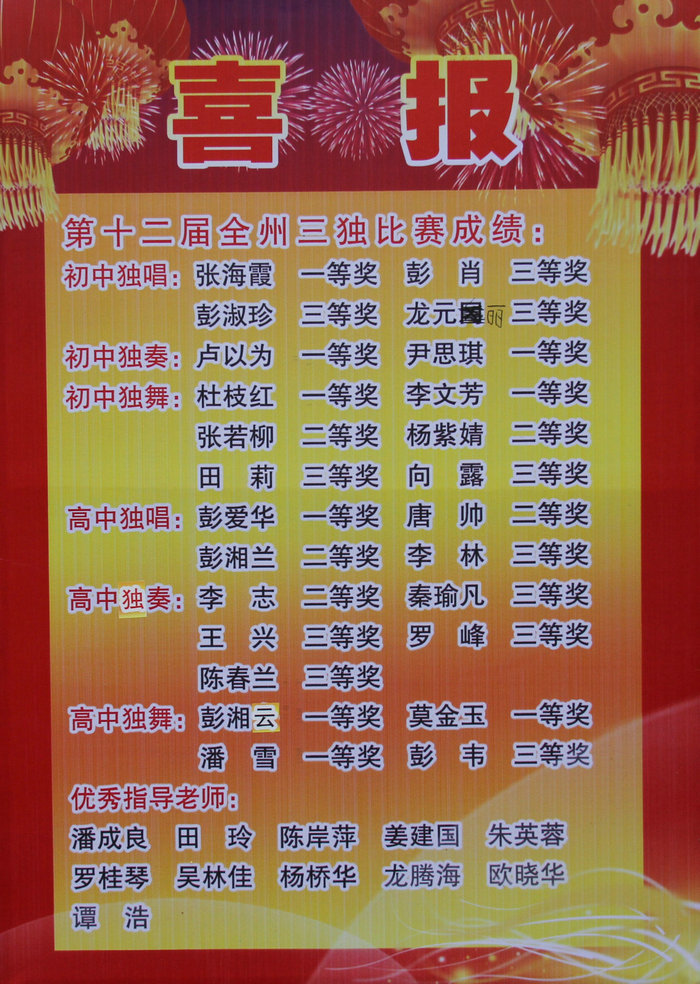 喜报
第十二届全州三独比赛成绩：
初中独唱：张海霞 一等奖 彭肖 三等奖
彭淑珍 三等奖 龙元丽 三等奖
初中独奏：卢以为 一等奖 尹思琪 一等奖
初中独舞：杜枝红 一等奖 李文芳 一等奖
张若柳 二等奖 杨紫婧 二等奖
田莉 三等奖 向露 三等奖
高中独唱：彭爱华 一等奖 唐帅 二等奖
彭湘兰 二等奖 李林 三等奖
高中独奏：李志 二等奖 秦瑜凡 三等奖
王兴 三等奖 罗峰 三等奖
陈春兰 三等奖
高中独舞：彭湘云 一等奖 莫金玉 一等奖
潘雪 一等奖 彭韦 三等奖
优秀指导老师：
潘成良 田玲 陈岸萍 姜建国 朱英蓉
罗桂琴 吴林佳 杨桥华 龙腾海 欧晓华
谭浩